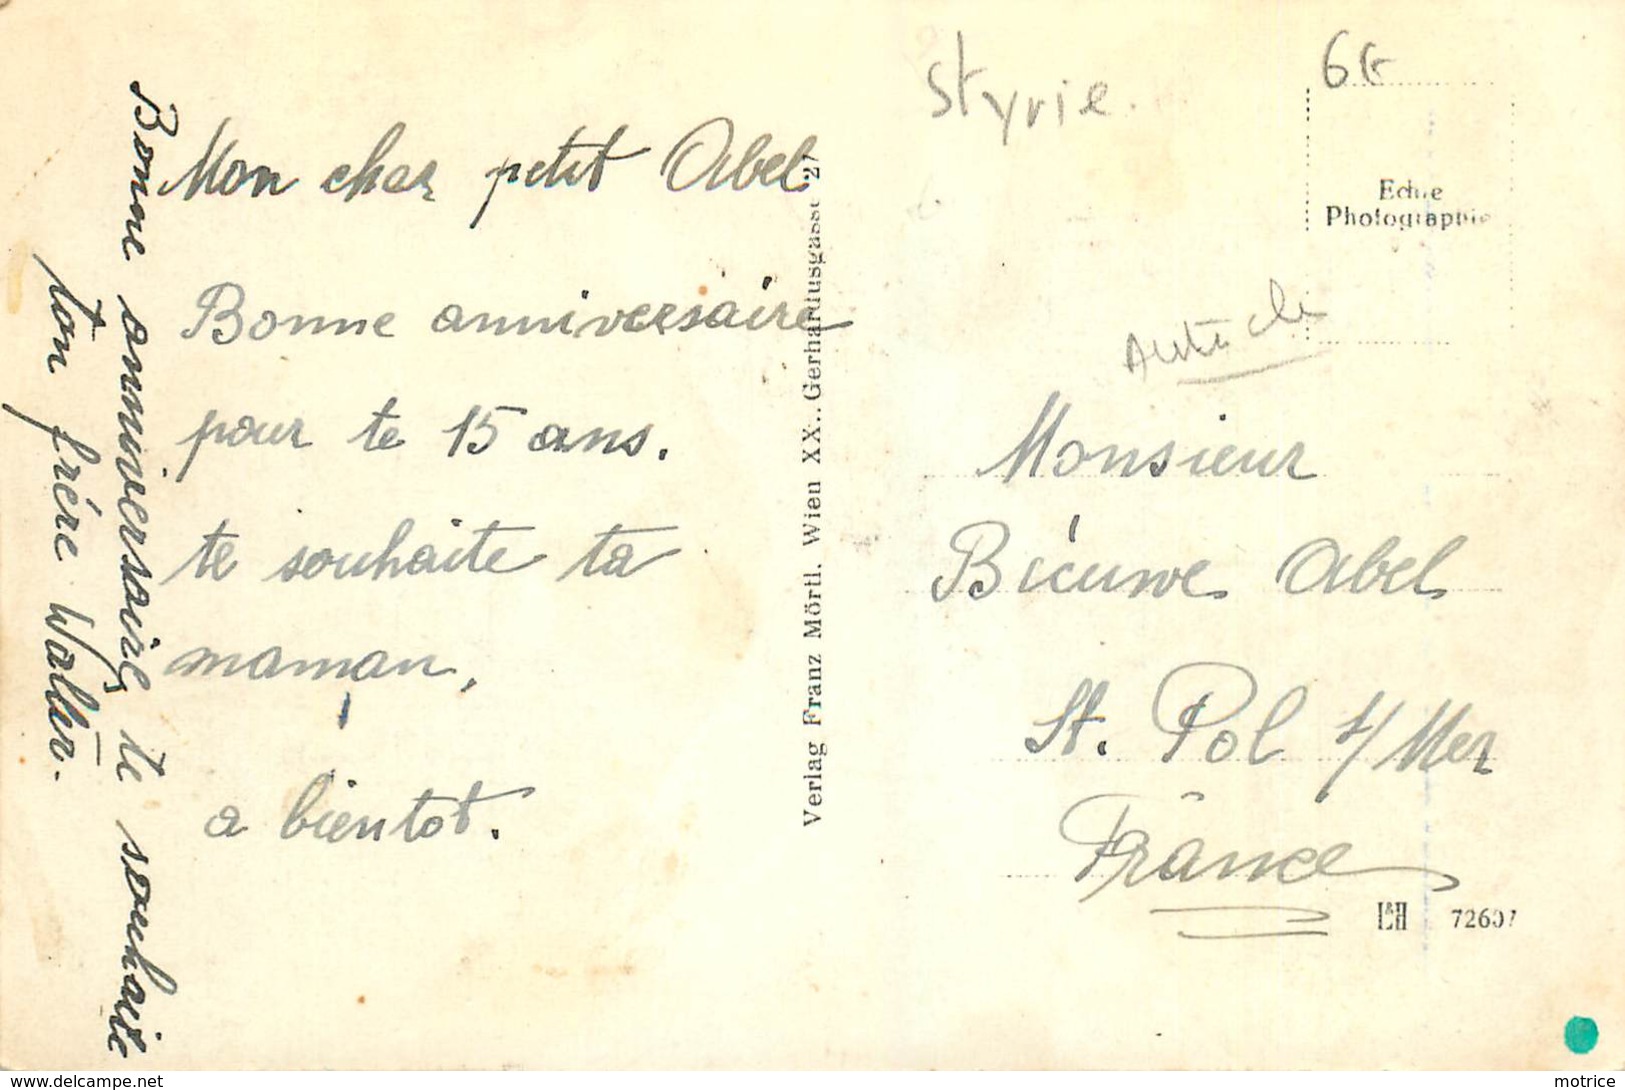 Mon cher petit Abel
Bonne anniversaire
pour te 15 ans.
te souhaite ta
maman,
a bientot.
Bonne anniversaire te souhaite
ton frère Walter.
Verlag Franz Mörtl. Wien XX., Gerhardusgasse 27
Styrie.
6€
Echte
Photographie
Autriche
Monsieur
Bécuwe Abel
St. Pol s/Mer
France
L&H 72607
www.delcampe.net
motrice